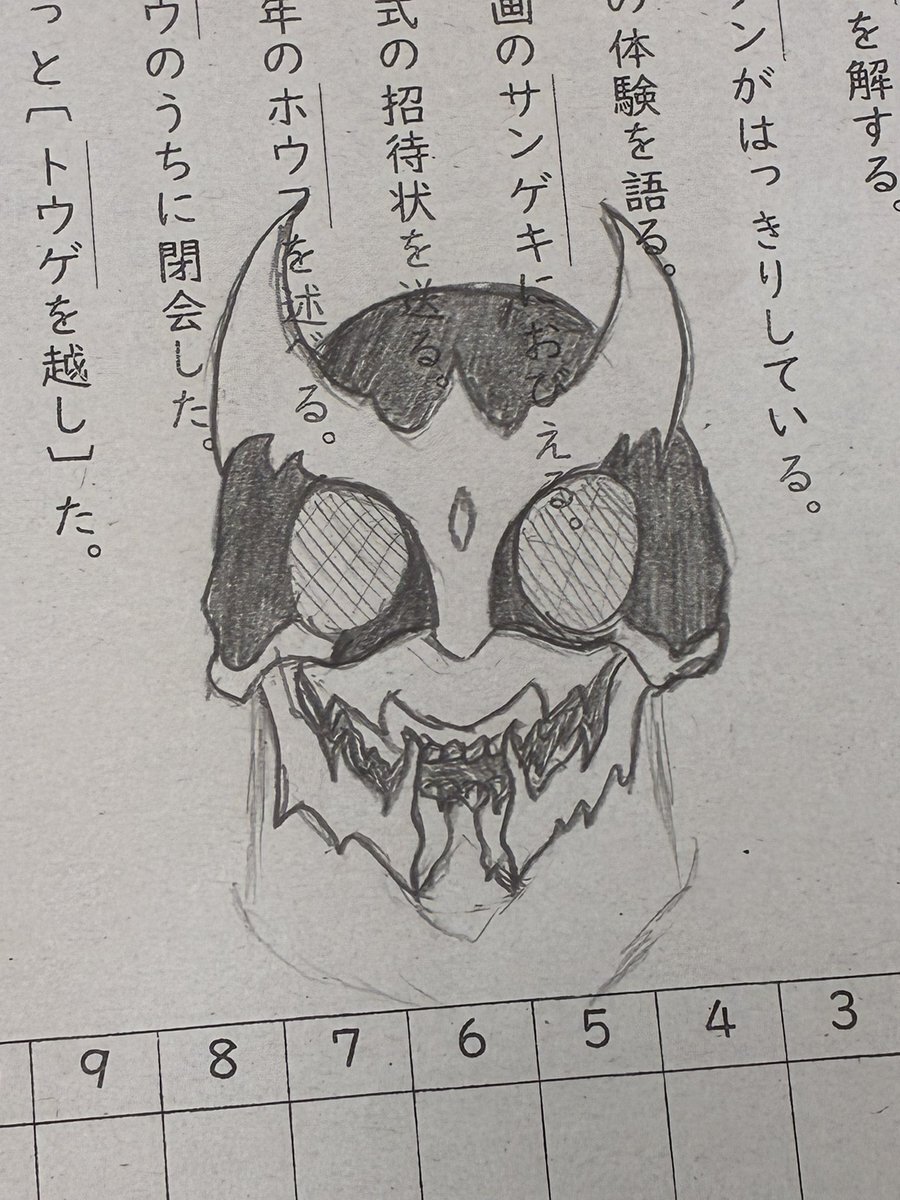 を解する。
ンがはっきりしている。
の体験を語る。
画のサンゲキにおびえる。
式の招待状を送る。
年のホウフを述べる。
ウのうちに閉会した。
っと［トウゲを越し］た。
9 8 7 6 5 4 3